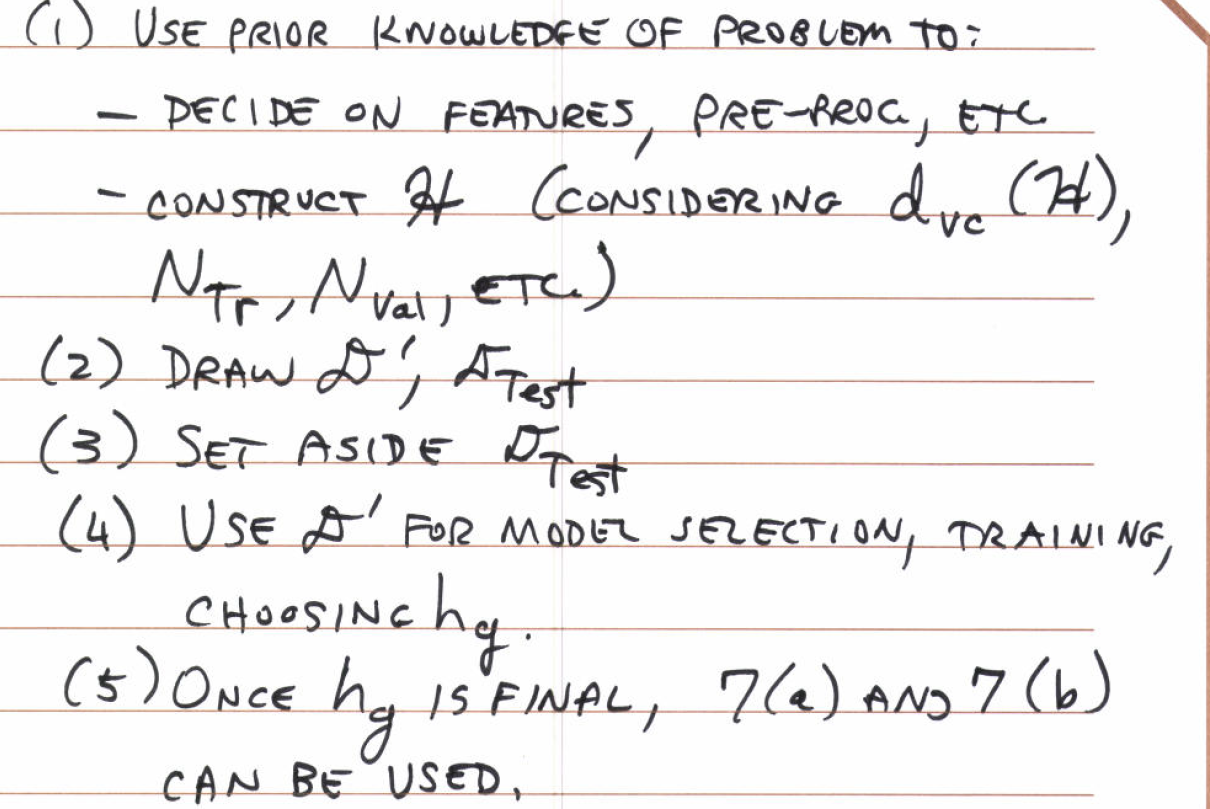 (1) USE PRIOR KNOWLEDGE OF PROBLEM TO:
– DECIDE ON FEATURES, PRE-PROC, ETC
- CONSTRUCT ℋ (CONSIDERING d_VC (ℋ),
N_Tr, N_Val, ETC.)
(2) DRAW 𝒟', 𝒟_Test
(3) SET ASIDE 𝒟_Test
(4) USE 𝒟' FOR MODEL SELECTION, TRAINING,
CHOOSING h_g.
(5) ONCE h_g IS FINAL, 7(a) AND 7(b)
CAN BE USED.